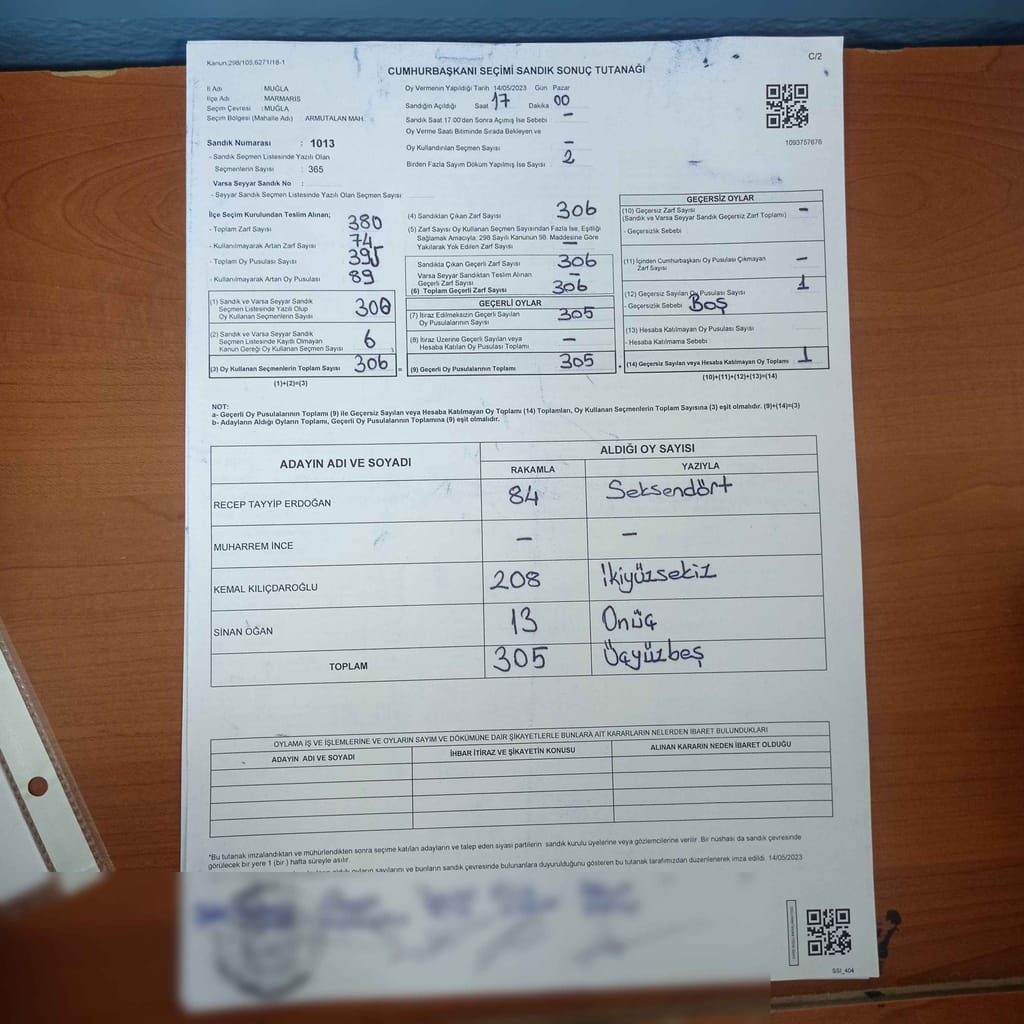 Kanun.298/105,6271/18-1
C/2
CUMHURBAŞKANI SEÇİMİ SANDIK SONUÇ TUTANAĞI
İl Adı : MUĞLA
İlçe Adı : MARMARİS
Seçim Çevresi : MUĞLA
Seçim Bölgesi (Mahalle Adı) ARMUTALAN MAH.
Oy Vermenin Yapıldığı Tarih 14/05/2023 Gün Pazar
Sandığın Açıldığı Saat 17 Dakika 00
Sandık Saat 17.00'den Sonra Açımış İse Sebebi –
Oy Verme Saati Bitiminde Sırada Bekleyen ve
Oy Kullandırılan Seçmen Sayısı –
Birden Fazla Sayım Döküm Yapılmış İse Sayısı 2
1093757676
Sandık Numarası : 1013
- Sandık Seçmen Listesinde Yazılı Olan
Seçmenlerin Sayısı : 365
Varsa Seyyar Sandık No :
- Seyyar Sandık Seçmen Listesinde Yazılı Olan Seçmen Sayısı
İlçe Seçim Kurulundan Teslim Alınan;
- Toplam Zarf Sayısı 380
- Kullanılmayarak Artan Zarf Sayısı 74
- Toplam Oy Pusulası Sayısı 395
- Kullanılmayarak Artan Oy Pusulası 89
(1) Sandık ve Varsa Seyyar Sandık
Seçmen Listesinde Yazılı Olup
Oy Kullanan Seçmenlerin Sayısı 300
(2) Sandık ve Varsa Seyyar Sandık
Seçmen Listesinde Kayıtlı Olmayan
Kanun Gereği Oy Kullanan Seçmen Sayısı 6
(3) Oy Kullanan Seçmenlerin Toplam Sayısı 306
(1)+(2)=(3)
(4) Sandıktan Çıkan Zarf Sayısı 306
(5) Zarf Sayısı Oy Kullanan Seçmen Sayısından Fazla İse, Eşitliği
Sağlamak Amacıyla; 298 Sayılı Kanunun 98. Maddesine Göre
Yakılarak Yok Edilen Zarf Sayısı –
Sandıkta Çıkan Geçerli Zarf Sayısı 306
Varsa Seyyar Sandıktan Teslim Alınan
Geçerli Zarf Sayısı –
(6) Toplam Geçerli Zarf Sayısı 306
GEÇERLİ OYLAR
(7) İtiraz Edilmeksizin Geçerli Sayılan
Oy Pusulalarının Sayısı 305
(8) İtiraz Üzerine Geçerli Sayılan veya
Hesaba Katılan Oy Pusulası Toplamı –
= (9) Geçerli Oy Pusulalarının Toplamı 305
GEÇERSİZ OYLAR
(10) Geçersiz Zarf Sayısı –
(Sandık ve Varsa Seyyar Sandık Geçersiz Zarf Toplamı)
- Geçersizlik Sebebi
(11) İçinden Cumhurbaşkanı Oy Pusulası Çıkmayan
Zarf Sayısı –
(12) Geçersiz Sayılan Oy Pusulası Sayısı 1
- Geçersizlik Sebebi BOŞ
(13) Hesaba Katılmayan Oy Pusulası Sayısı
- Hesaba Katılmama Sebebi
+ (14) Geçersiz Sayılan veya Hesaba Katılmayan Oy Toplamı 1
(10)+(11)+(12)+(13)=(14)
NOT:
a- Geçerli Oy Pusulalarının Toplamı (9) ile Geçersiz Sayılan veya Hesaba Katılmayan Oy Toplamı (14) Toplamları, Oy Kullanan Seçmenlerin Toplam Sayısına (3) eşit olmalıdır. (9)+(14)=(3)
b- Adayların Aldığı Oyların Toplamı, Geçerli Oy Pusulalarının Toplamına (9) eşit olmalıdır.
ADAYIN ADI VE SOYADI ALDIĞI OY SAYISI
RAKAMLA YAZIYLA
RECEP TAYYİP ERDOĞAN 84 Seksendört
MUHARREM İNCE – –
KEMAL KILIÇDAROĞLU 208 İkiyüzsekiz
SİNAN OĞAN 13 Onüç
TOPLAM 305 Üçyüzbeş
OYLAMA İŞ VE İŞLEMLERİNE VE OYLARIN SAYIM VE DÖKÜMÜNE DAİR ŞİKAYETLERLE BUNLARA AİT KARARLARIN NELERDEN İBARET BULUNDUKLARI
ADAYIN ADI VE SOYADI İHBAR İTİRAZ VE ŞİKAYETİN KONUSU ALINAN KARARIN NEDEN İBARET OLDUĞU
*Bu tutanak imzalandıktan ve mühürlendikten sonra seçime katılan adayların ve talep eden siyasi partilerin sandık kurulu üyelerine veya gözlemcilerine verilir. Bir nüshası da sandık çevresinde
görülecek bir yere 1 (bir ) hafta süreyle asılır.
aldığı oyların sayılarını ve bunların sandık çevresinde bulunanlara duyurulduğunu gösteren bu tutanak tarafımızdan düzenlenerek imza edildi. 14/05/2023
SSI_404